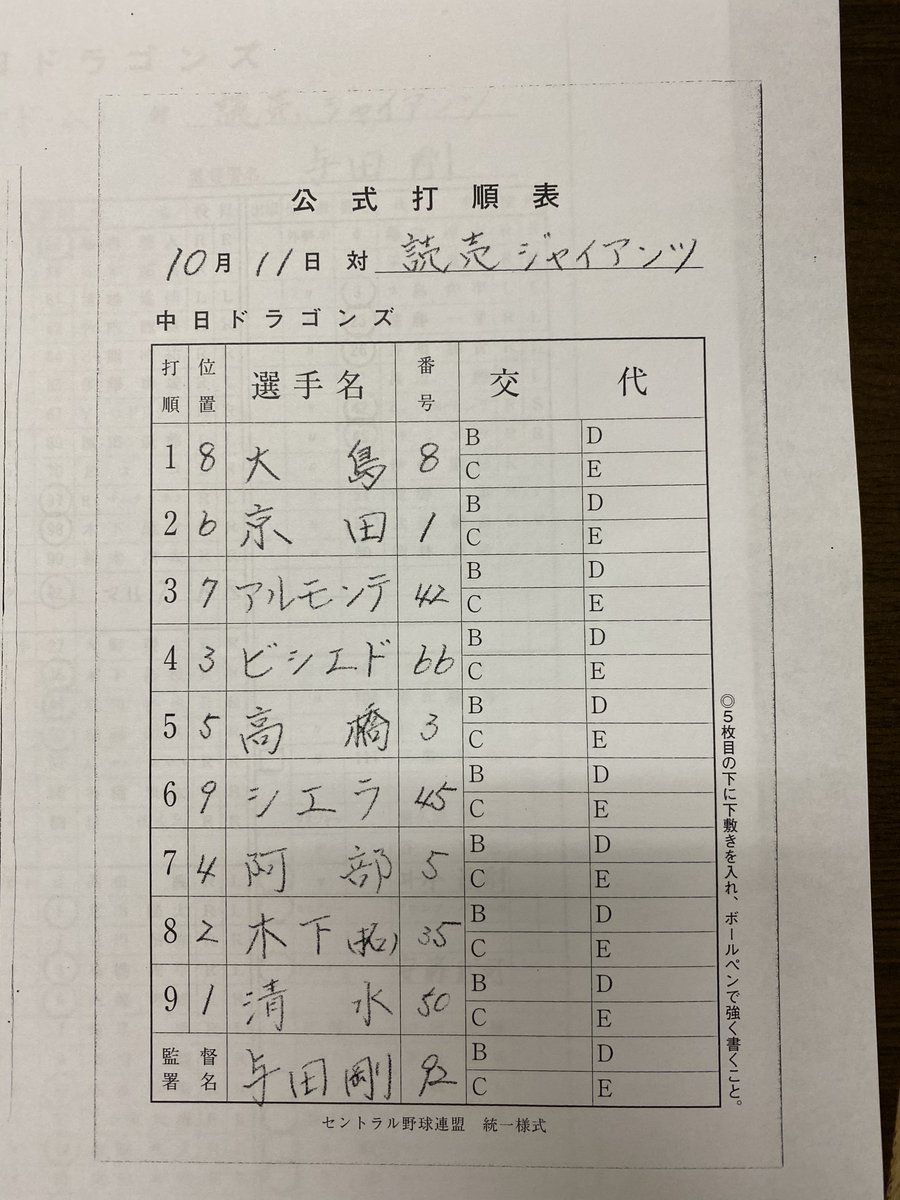 公式打順表
10月11日 対 読売ジャイアンツ
中日ドラゴンズ
打順 位置 選手名 番号 交代
1 8 大島 8 B D C E
2 6 京田 1 B D C E
3 7 アルモンテ 42 B D C E
4 3 ビシエド 66 B D C E
5 5 高橋 3 B D C E
6 9 シエラ 45 B D C E
7 4 阿部 5 B D C E
8 2 木下(拓) 35 B D C E
9 1 清水 50 B D C E
監督署名 与田剛 92 B D C E
セントラル野球連盟 統一様式
◎5枚目の下に下敷きを入れ、ボールペンで強く書くこと。
ドラゴンズ
読売ジャイアンツ
与田剛